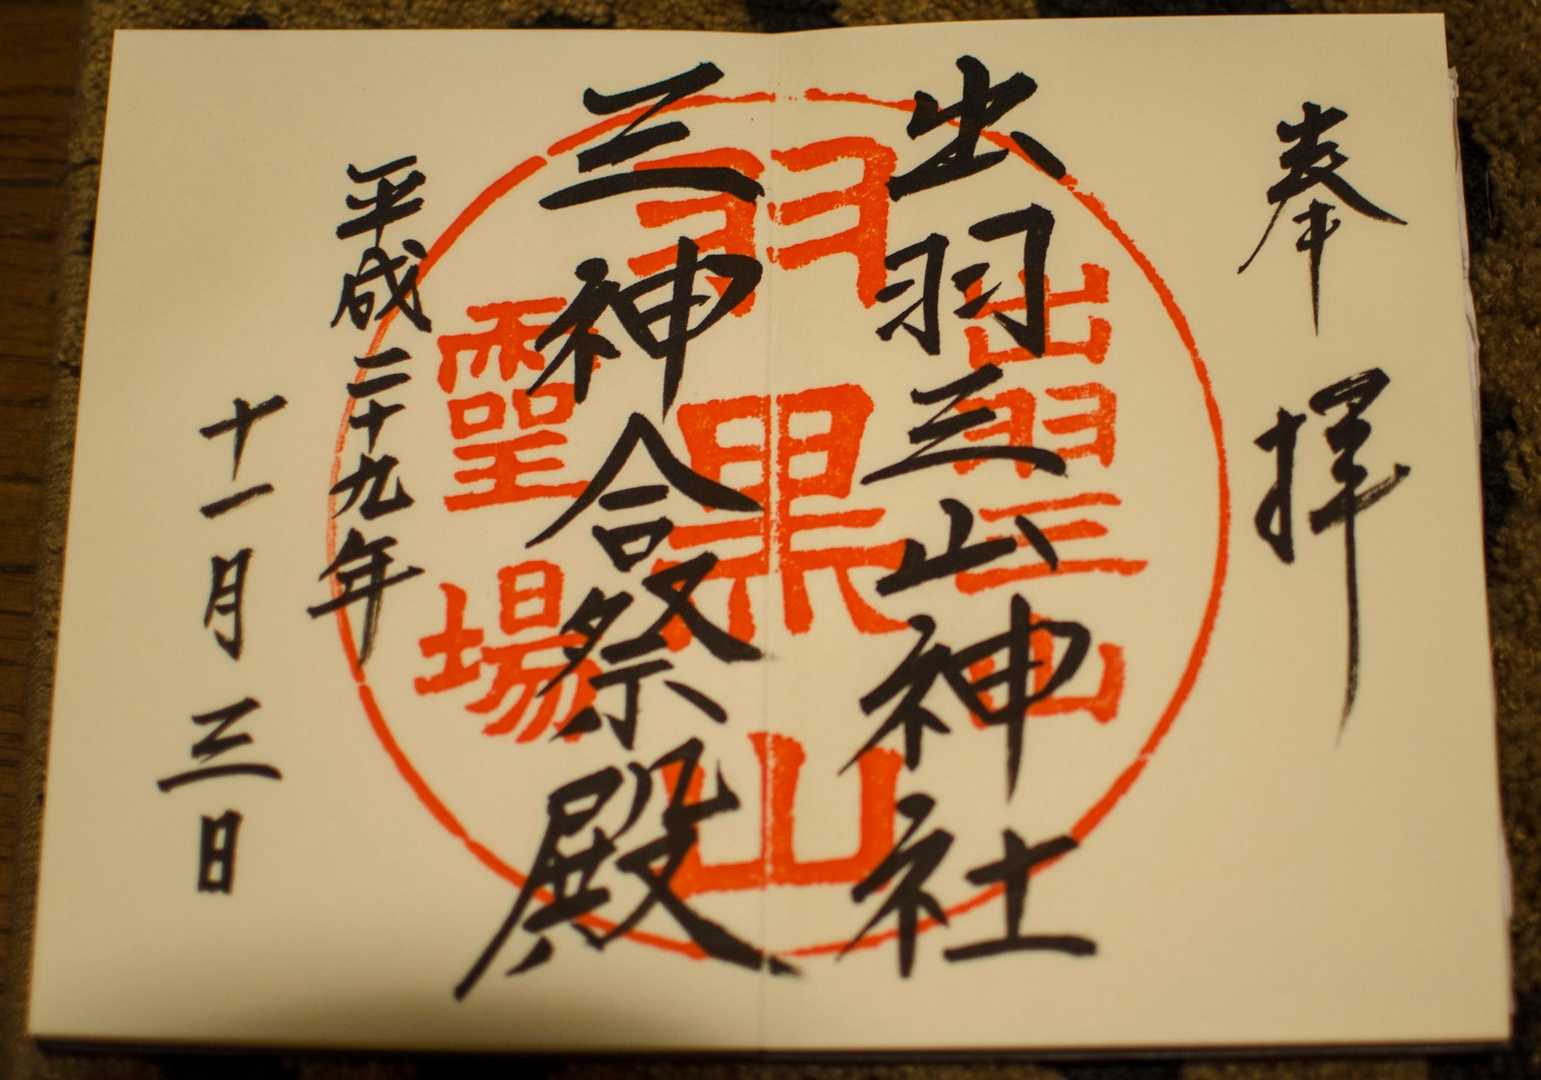 奉拝
出羽三山神社
三神合祭殿
平成二十九年
十一月三日
出羽三山
羽黒山
霊場